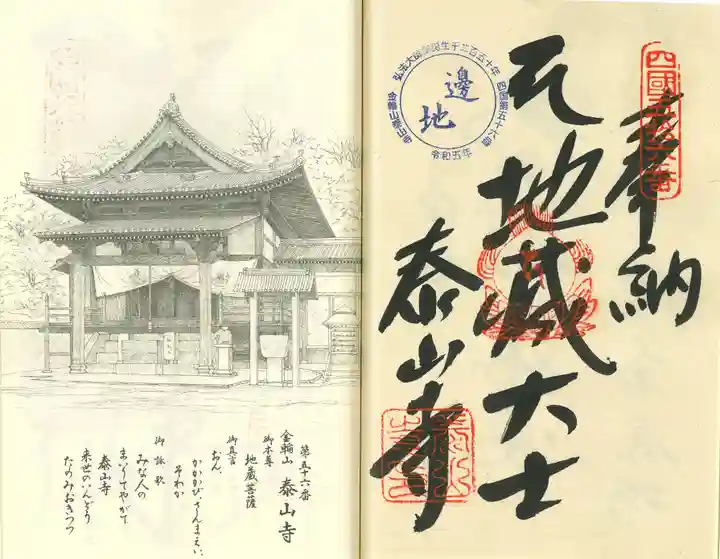 四國五十六番
奉納
地蔵大士
泰山寺
弘法大師御誕生千二百五十年
四国第五十六番
金輪山泰山寺
令和五年
邊地
第五十六番
金輪山 泰山寺
御本尊
地蔵菩薩
御真言
おん
かかかび さんまえい
そわか
御詠歌
みな人の
まいりてやがて
泰山寺
来世のいんどう
たのみおきつつ